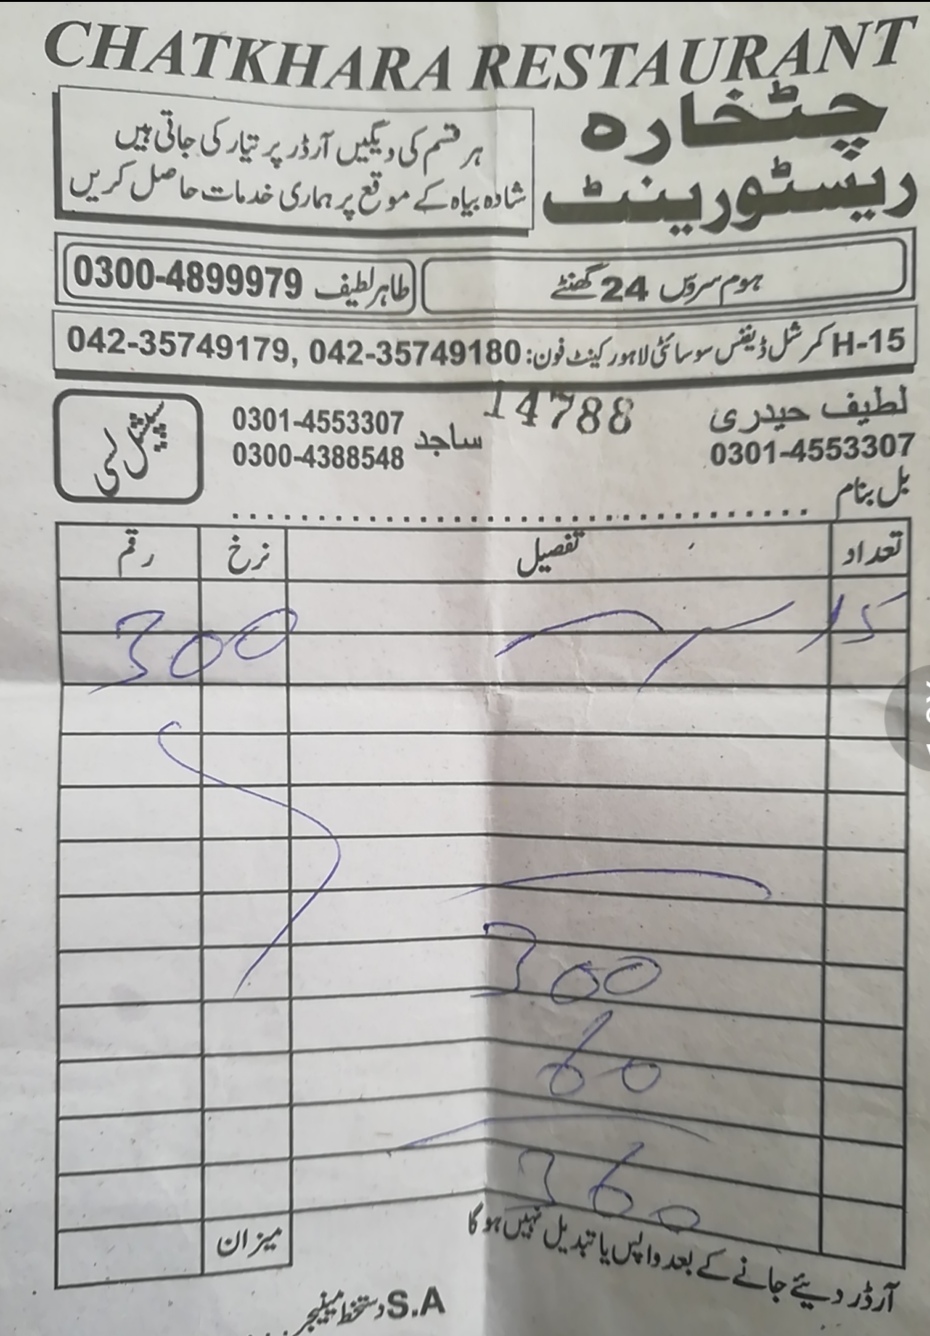 CHATKHARA RESTAURANT
چٹخارہ
ریسٹورینٹ
ہر قسم کی دیگیں آرڈر پر تیار کی جاتی ہیں
شادہ بیاہ کے موقع پر ہماری خدمات حاصل کریں
ہوم سروس 24 گھنٹے
طاہر لطیف 0300-4899979
H-15 کمرشل ڈیفنس سوسائٹی لاہور کینٹ فون: 042-35749180 ,042-35749179
لطیف حیدری
0301-4553307
14788
ساجد
0301-4553307
0300-4388548
سپیشل لسی
بل بنام
تعداد تفصیل نرخ رقم
15 300
300
60
360
میزان
آرڈر دیئے جانے کے بعد واپس یا تبدیل نہیں ہوگا
S.A دستخط مینیجر